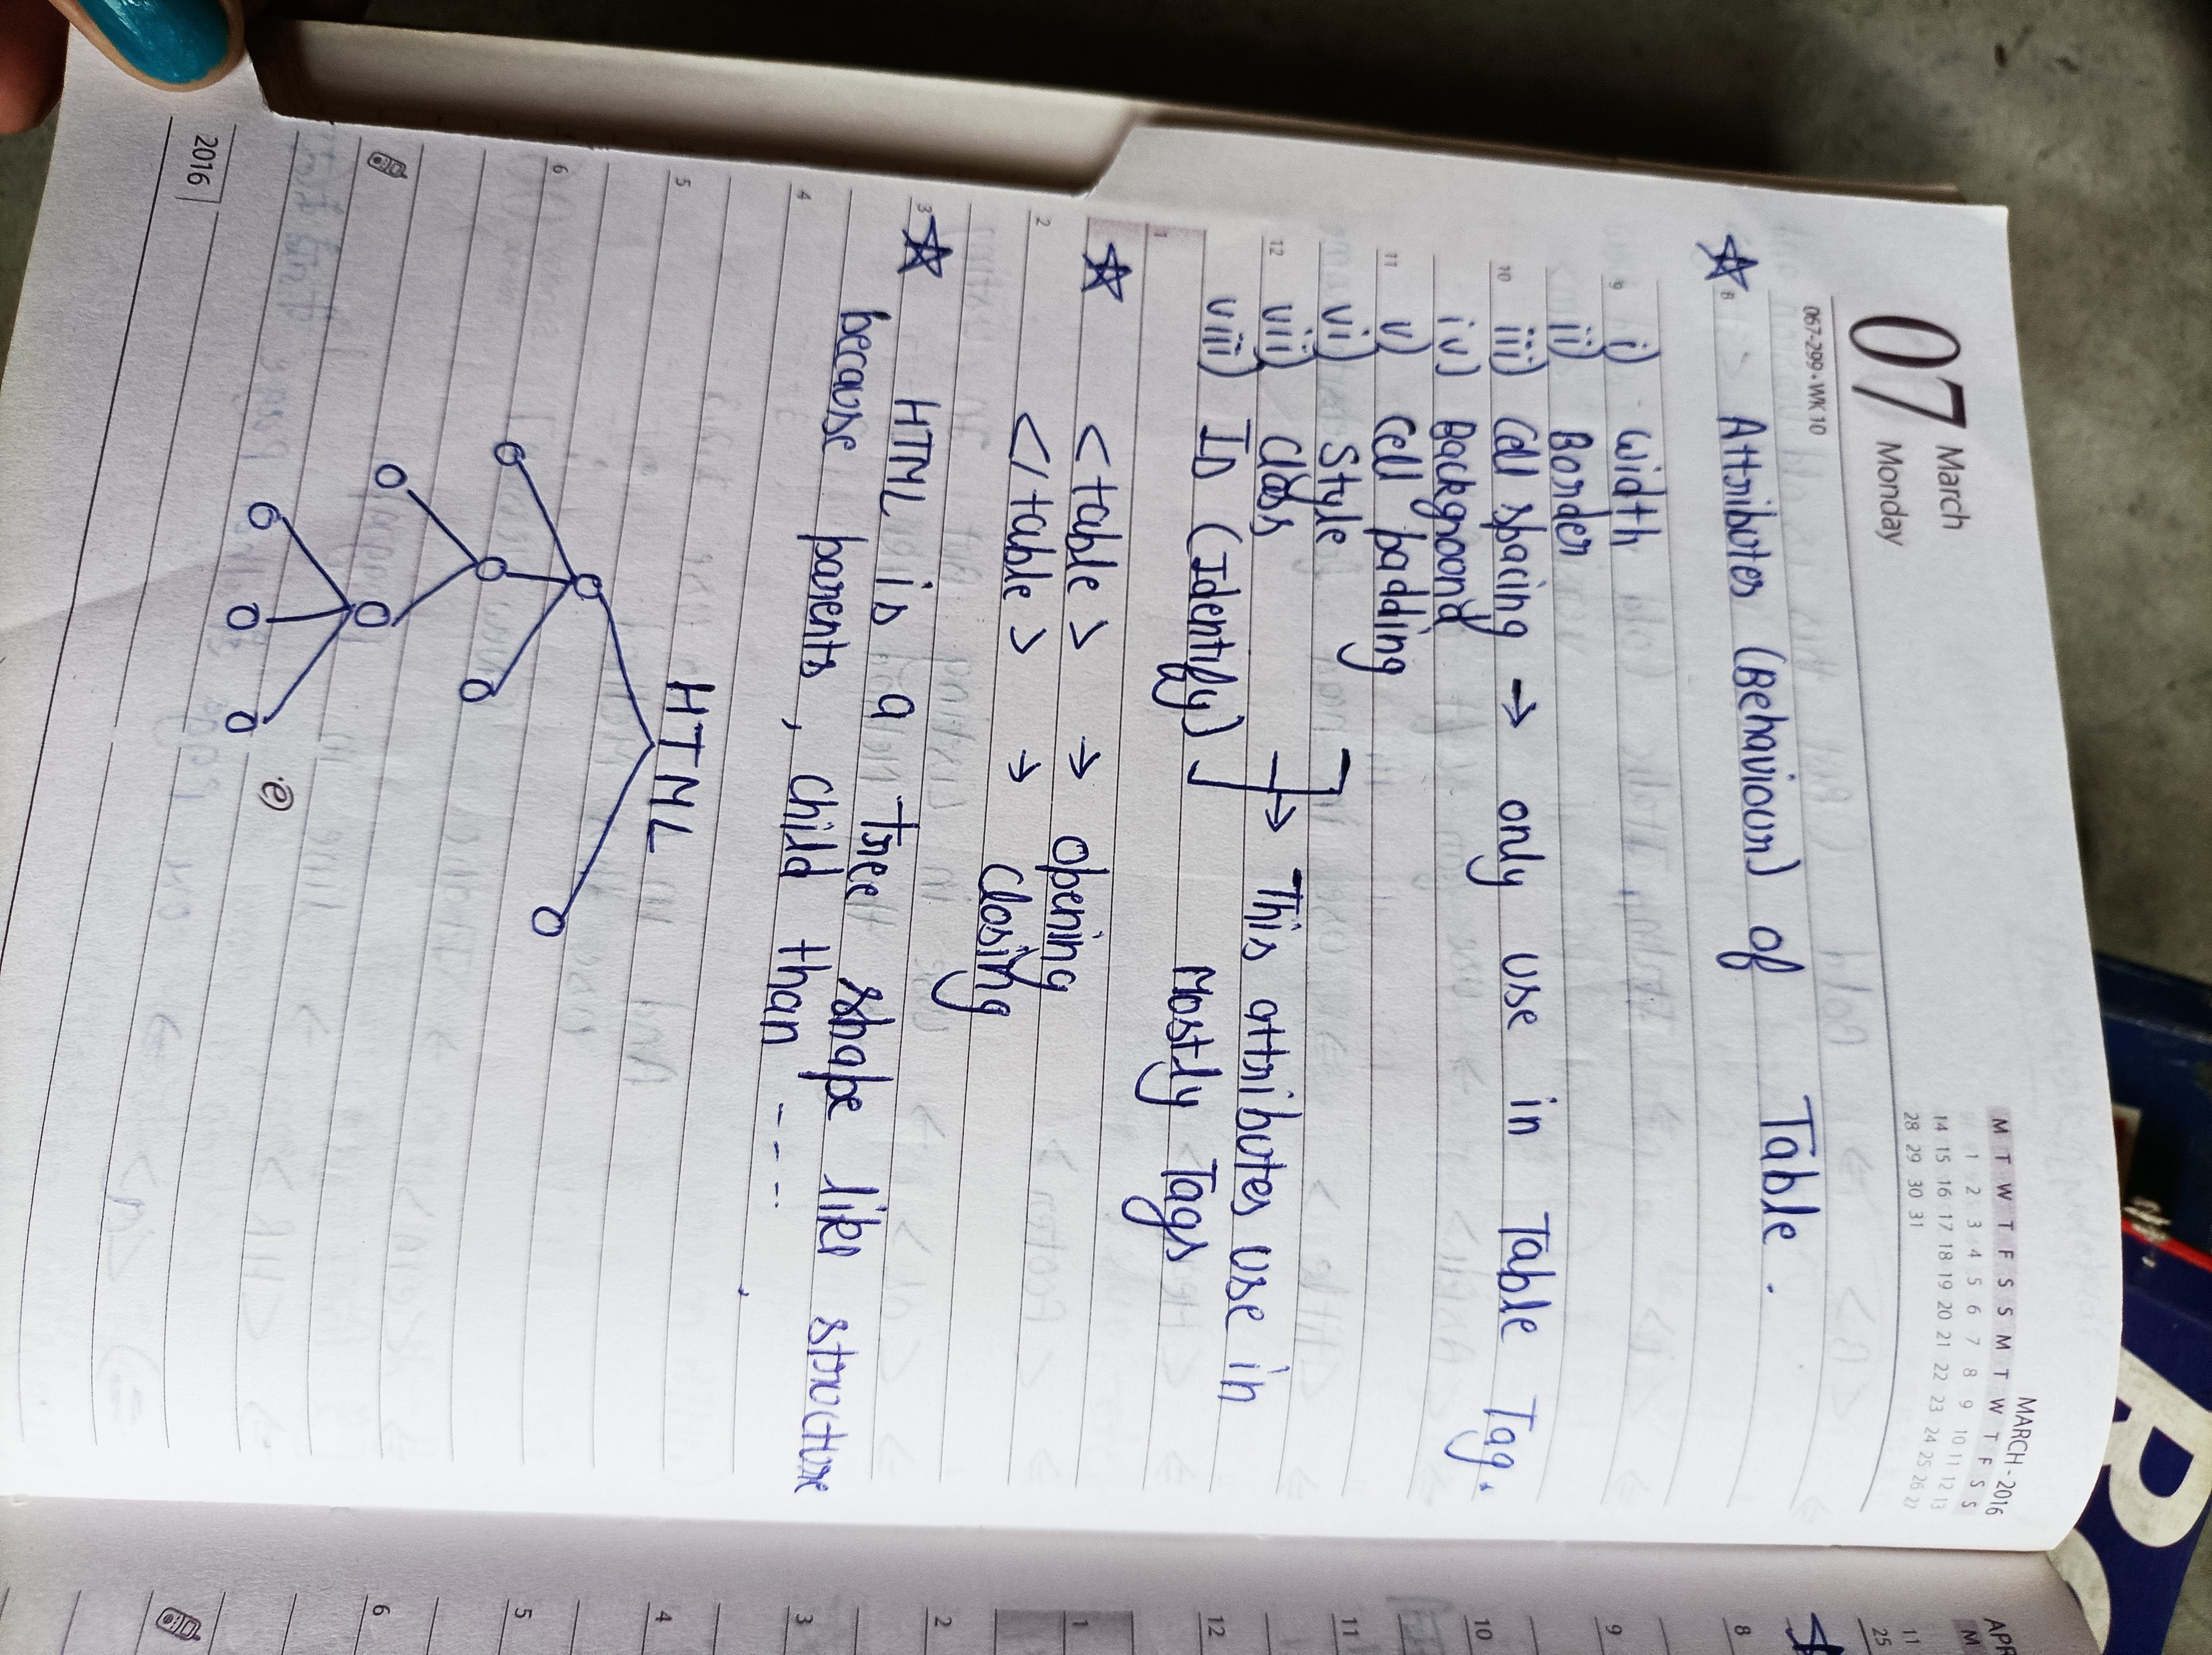 07 March
Monday
067-299 • WK 10
MARCH - 2016
M T W T F S S M T W T F S S
1 2 3 4 5 6 7 8 9 10 11 12 13
14 15 16 17 18 19 20 21 22 23 24 25 26 27
28 29 30 31
8 Attributes (Behaviour) of Table.
9 i) Width
ii) Border
10 iii) Cell spacing → only use in Table Tag.
iv) Backgroond
11 v) Cell padding
vi) Style
12 vii) Class → This attributes use in
viii) ID (Identify) Mostly Tags
1
<table> → opening
2 </table> → Closing
3 HTML is a Tree shape like structure
because parents, child than ----
4
5 HTML
6
e)
2016
APR
M
11
25
8
9
10
11
12
1
2
3
4
5
6